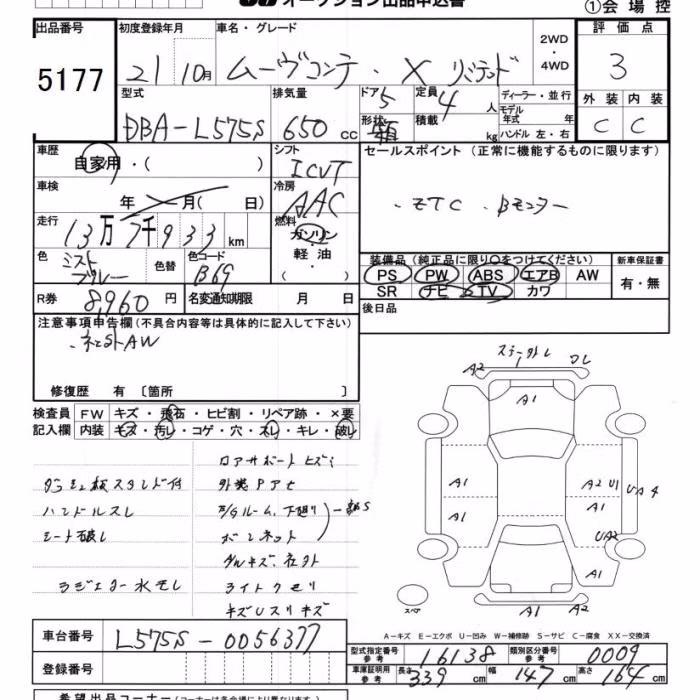 オークション出品申込書 ①会場控
出品番号 初度登録年月 車名・グレード 2WD・4WD 評価点
5177 21 10月 ムーヴコンテ・X リミテッド 3
型式 排気量 ドア 定員 ディーラー・並行 外装 内装
DBA-L575S 650 cc 5 4人 モデル年式 年 C C
形状 箱 積載 kg ハンドル 左・右
車歴 自家用・( ) シフト ICVT セールスポイント (正常に機能するものに限ります)
車検 年 月( 日) 冷房 AAC ・ETC ・Bモニター
走行 13万7千933km 燃料 ガソリン・軽油・( )
色 ミストブルー 色替 色コード B69 装備品 (純正品に限り○をつけてください) 新車保証書
PS PW ABS エアB AW 有・無
SR ナビ TV カワ
R券 8,960円 名変通知期限 月 日 後日品
注意事項申告欄(不具合内容等は具体的に記入して下さい)
・社外AW
修復歴 有 〔箇所 〕
検査員 FW キズ・飛石・ヒビ割・リペア跡・×要
記入欄 内装 キズ・汚レ・コゲ・穴・スレ・キレ・破レ
コアサポートヒズミ
スタンド付 外装
ハンドルスレ ルーム、下廻り
シート破レ ボンネット
ラジエター水モレ ライトクモリ
キズUスリキズ
A2 A1
A1 A2 U1 UA4
A1 A1 UA2
A1 A1
スペア
A-キズ E-エクボ U-凹み W-補修跡 S-サビ C-腐食 XX-交換済
車台番号 L575S-0056377
型式指定番号 参考 16138 類別区分番号 参考 0009
登録番号 車庫証明用 参考 長さ 339cm 幅 147cm 高さ 164cm
希望出品コーナー